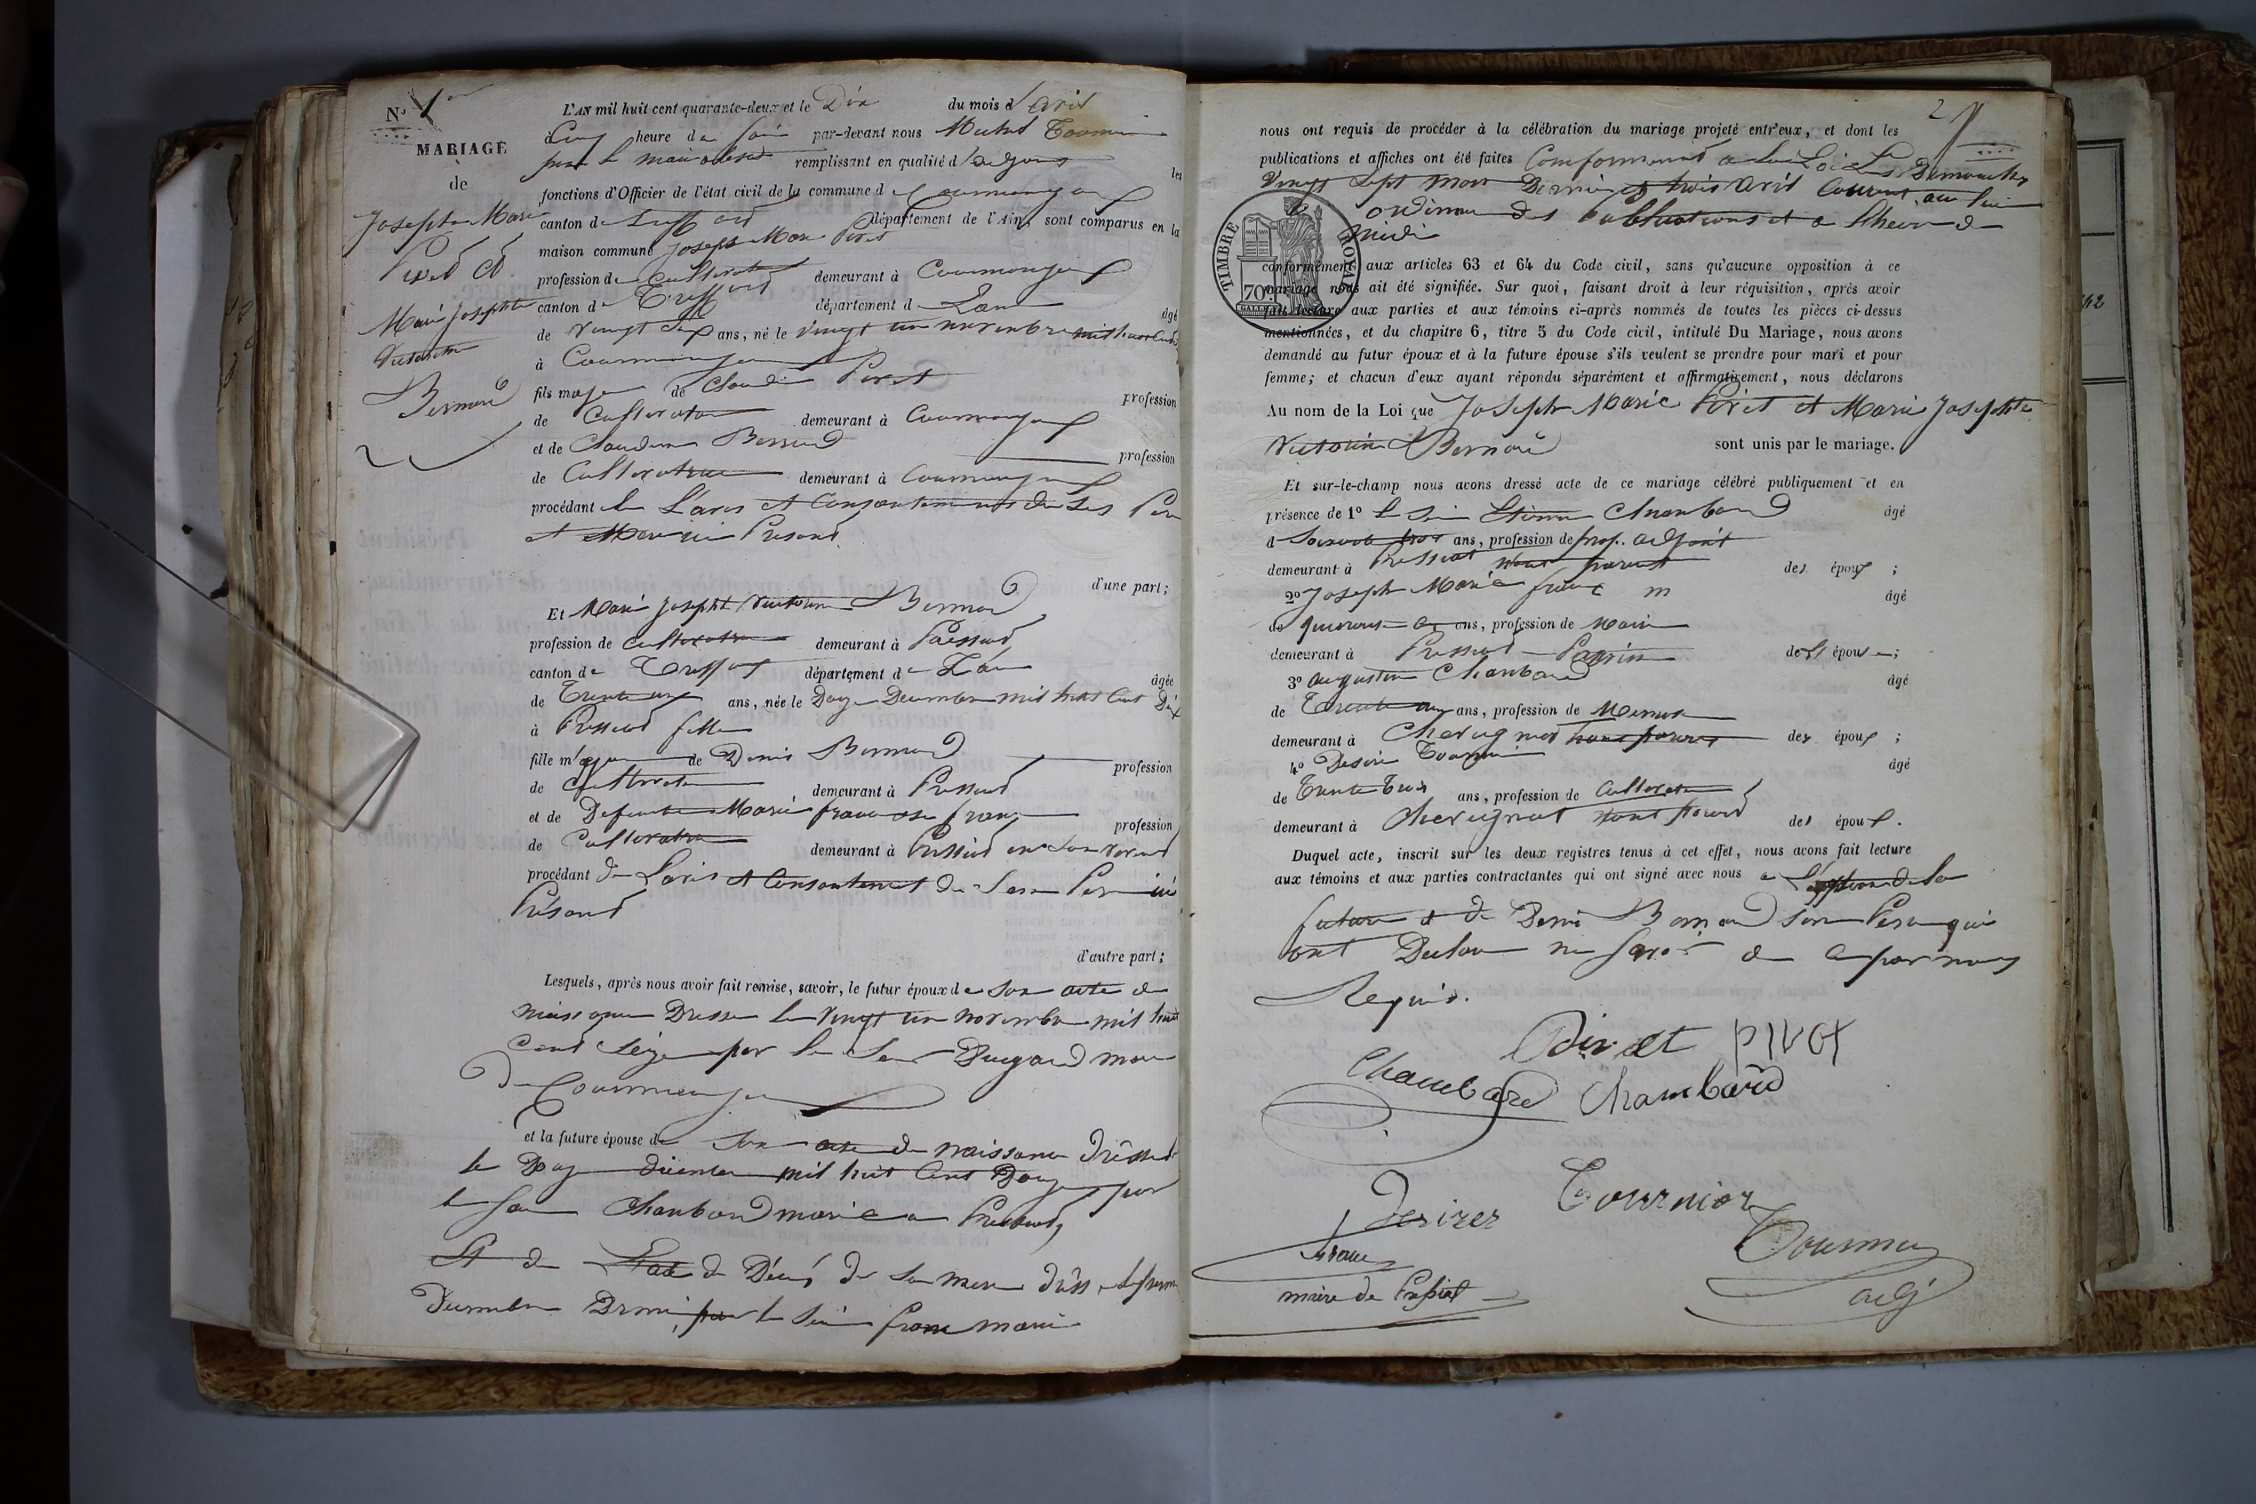 N° 1er
MARIAGE
de
Joseph Marie
Pivet et
Marie Josephte
Victorine
Bernard
L'AN mil huit cent quarante-deux et le Dix du mois d'avril
à Cinq heure du Soir par-devant nous Michel Tournier
pour le maire remplissant en qualité d'adjoint les
fonctions d'Officier de l'état civil de la commune de Courmangoux
canton de Treffort département de l'Ain, sont comparus en la
maison commune Joseph Marie Pivet
profession de Cultivateur demeurant à Courmangoux
canton de Treffort département de L'ain âgé
de vingt Six ans, né le vingt un novembre mil huit Cent
à Courmangoux
fils majeur de Claude Pivet profession
de Cultivateur demeurant à Courmangoux
et de Claudine profession
de Cultivatrice demeurant à Courmangoux
procédant de L'avis et Consentement de Ses Père
et Mère ici Présent
d'une part;
Et Marie Josephte Victorine Bernard
profession de Cultivatrice demeurant à Pressiat
canton de Treffort département de L'ain âgée
de Trente un ans, née le Douze Décembre mil huit Cent Dix
à Pressiat fille
fille majeure de Denis Bernard profession
de Cultivateur demeurant à Pressiat
et de Defunte Marie françoise franc profession
de Cultivatrice demeurant à Pressiat en Son vivant
procédant de L'avis et Consentement de Son Père ici
Présent
d'autre part;
Lesquels, après nous avoir fait remise, savoir, le futur époux de son acte de
naissance Dressé le vingt un novembre mil huit
Cent Seize par le Sieur maire
de Courmangoux
et la future épouse de Son acte de naissance Dressé
le Douze décembre mil huit Cent par
le Sieur Chambard maire a Pressiat,
Et de L'acte de Décès de Sa mère Dressé le
Décembre Dernier, par le Sieur franc maire
2
nous ont requis de procéder à la célébration du mariage projeté entr'eux, et dont les
publications et affiches ont été faites Conformement a la Loi Les Dimanches
vingt Sept mars Dernier et trois avril Courant, au lieu
ordinaire des Publications et a l'heure de
midi
TIMBRE ROYAL
70c
conformément aux articles 63 et 64 du Code civil, sans qu'aucune opposition à ce
mariage nous ait été signifiée. Sur quoi, faisant droit à leur réquisition, après avoir
fait lecture aux parties et aux témoins ci-après nommés de toutes les pièces ci-dessus
mentionnées, et du chapitre 6, titre 5 du Code civil, intitulé Du Mariage, nous avons
demandé au futur époux et à la future épouse s'ils veulent se prendre pour mari et pour
femme; et chacun d'eux ayant répondu séparément et affirmativement, nous déclarons
Au nom de la Loi que Joseph Marie Pivet et Marie Josephte
Victorine Bernard sont unis par le mariage.
Et sur-le-champ nous avons dressé acte de ce mariage célébré publiquement et en
présence de 1° le Sieur Etienne Chambard âgé
d Soixante trois ans, profession de prop. adjoint
demeurant à Pressiat non parent des époux;
2° Joseph Marie franc âgé
de quarante ans, profession de Maire
demeurant à Pressiat de l'épouse;
3° augustin Chambard âgé
de Trente ans, profession de
demeurant à Chevignat non parent des époux;
4° Desiré Tournier âgé
de Trente Trois ans, profession de Cultivateur
demeurant à Chevignat non parent des époux.
Duquel acte, inscrit sur les deux registres tenus à cet effet, nous avons fait lecture
aux témoins et aux parties contractantes qui ont signé avec nous a L'exeption de la
future et de Denis Bernard son Père qui
ont Déclaré ne Savoir de ce par nous
Requis.
Pivet PIVET
Chambard Chambard
Desirer Tournier
franc Tournier
maire de Pressiat adj